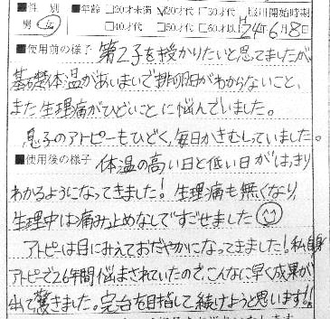 ■性 別 ■年齢 □20才未満 ☑20才代 □30才代 服用開始時期
男 女 □40才代 □50才代 □60才以上 H24年6月8日
■使用前の様子 第2子を授かりたいと思てましたが
基礎体温があいまいで排卵日がわからないこと、
また生理痛がひどいことに悩んでいました。
息子のアトピーもひどく、毎日かきむしていました。
■使用後の様子 体温の高い日と低い日がはっきり
わかるようになってきました!生理痛も無くなり、
生理中は痛み止めなしですごせました
アトピーは目にみえておだやかになってきました!私自身
アトピーで26年間悩まされていたので、こんなに早く成果が
出て驚きました。完治を目指して続けようと思います!!